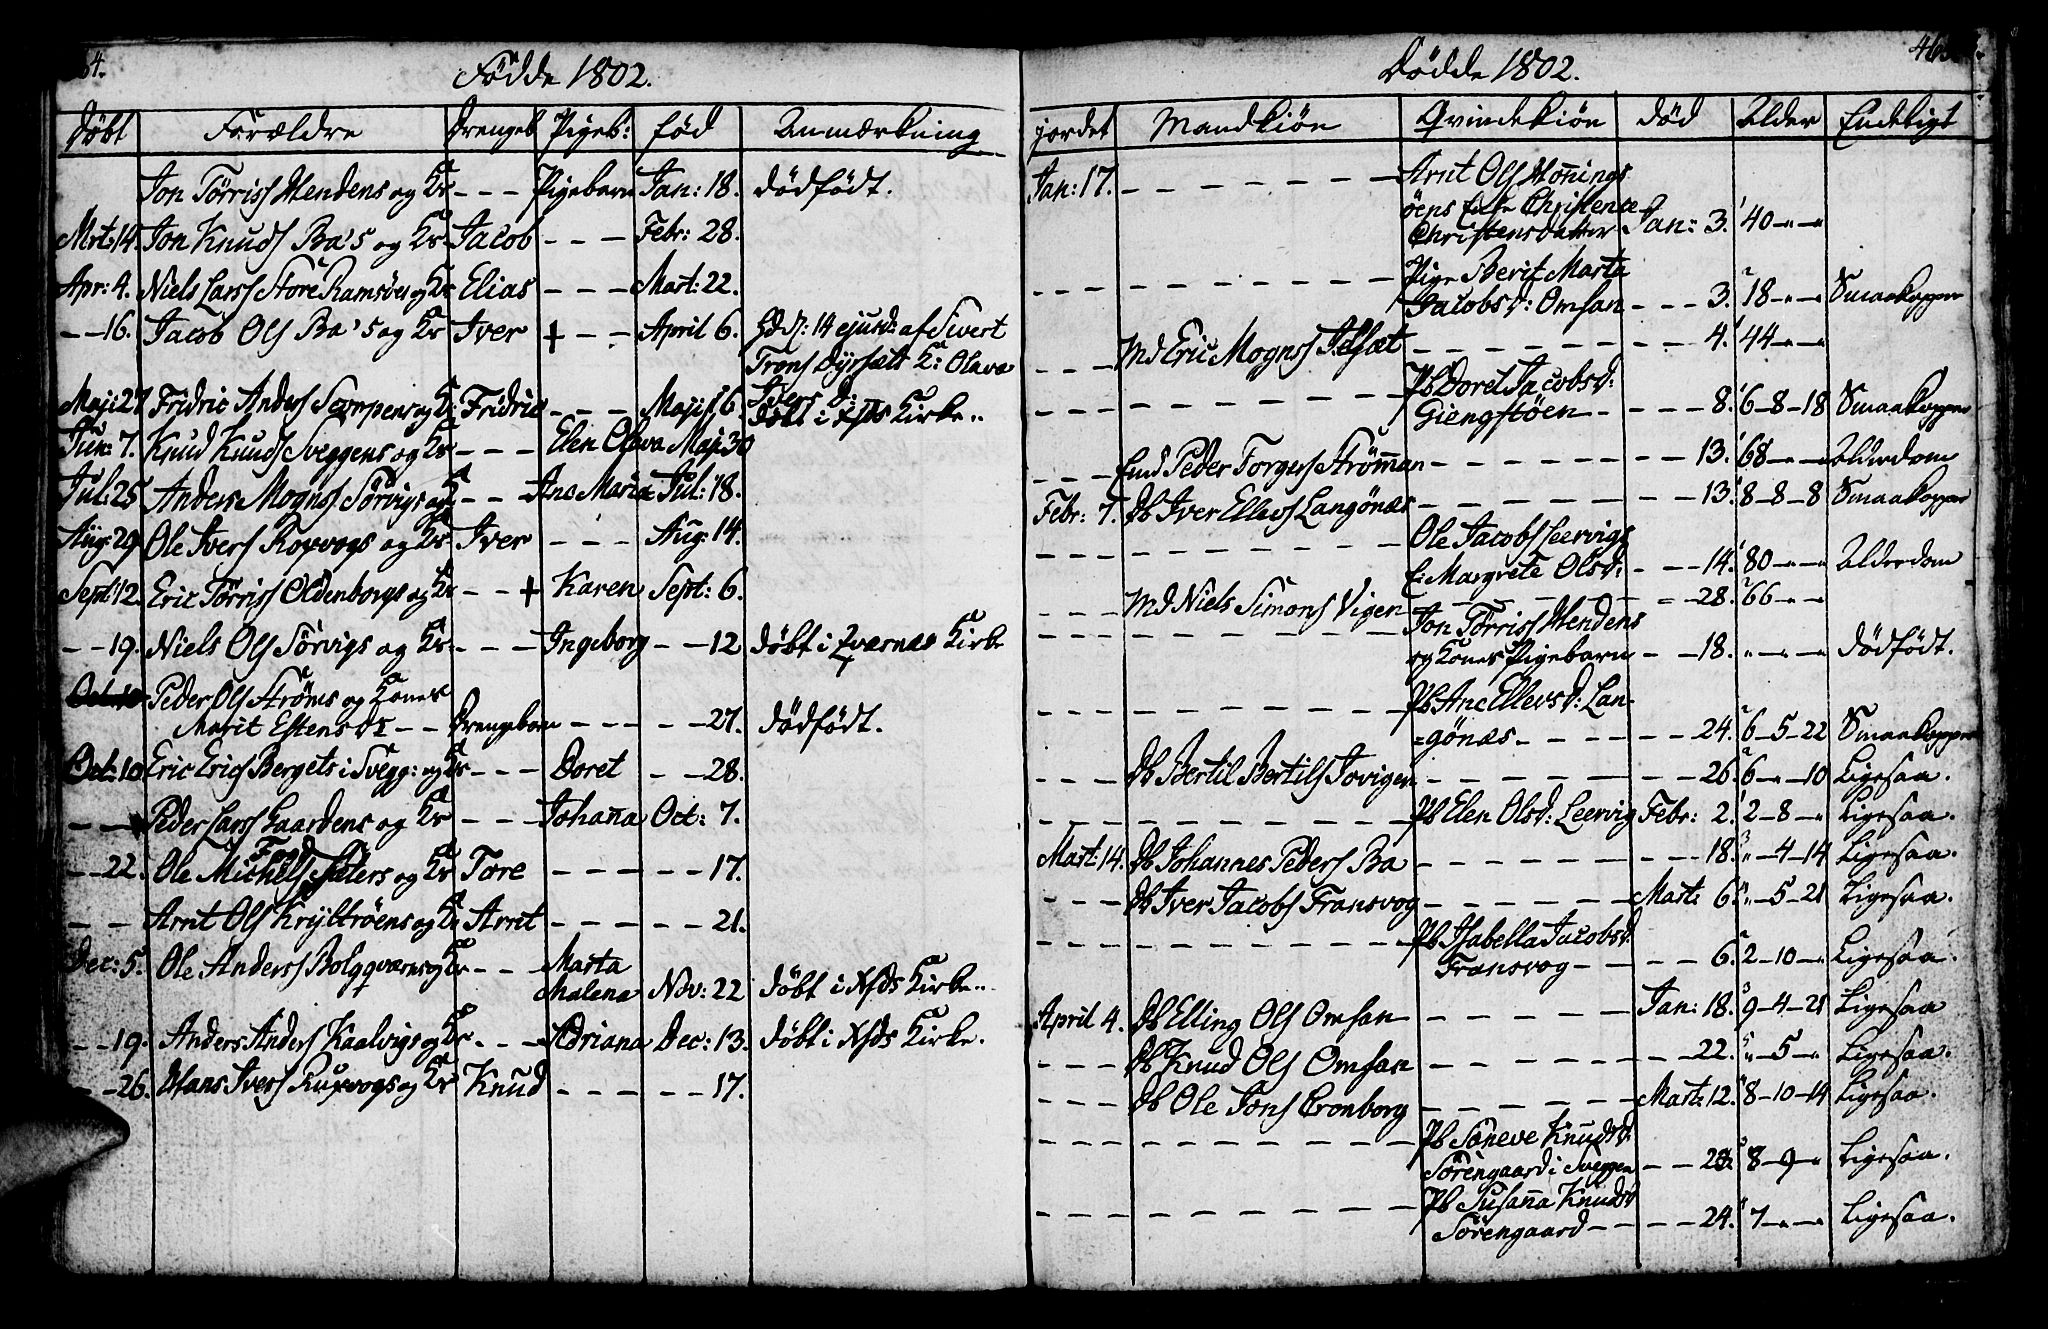 Födde 1802.
Döbt Forældre Drengeb Pigeb: fød Anmærkning
Jon Törriss Hendens og Kr - - - Pigebarn Jan: 18. dödfödt.
Mrt: 14. Jon Knuds Ba's og Kr Jacob - - - Febr: 28.
Apr: 4. Niels Larss Store Ramsöes og Kr Elias - - - Mart: 22.
- - 16. Jacob Ols Ba's og Kr Iver + - - April 6. 14 ejusd: af Sivert
Trons Dyrsæt K: Olava
Ivers D:
Maji: 27 Fridric Anders og K: Fridric - - - Maji 16. döbt i Xsds Kirke..
Jun: 7. Knud Knuds Sveggens og Kr - - - Elen Olava Maji 30
Jul: 25 Anders Mogns Sörvigs og K - - - Ane Maria Jul: 18.
Aug: 29 Ole Ivers Roxvogs og Kr Iver - - - Aug: 14.
Sept: 12. Eric Törriss Oldenborgs og Kr - - + Karen Sept: 6.
- - 19. Niels Ols Sörvigs og Kr - - - Ingeborg - - 12 döbt i Qværnæs Kirke
Peder Ols Ströms og Kones
Marit Estens Dr - - Drengebarn - - - - - 27. dödfödt.
Oct: 10 Eric Erics Bergets i Svegg: og Kr - - - Doret - - 28.
- - Peder Lars Gaardens og Kr - - - Johana Oct: 7.
- - 22. Ole Michels Sæters og Kr Tore - - - - - 17.
- - Arnt Ols Kryltröens og K: Arnt - - - - - 21.
Dec: 5. Ole Anders Bolgqværns og Kr - - - Marta
Malena Nov: 22 döbt i Xsds Kirke..
- - 19. Anders Anders Kaalvigs og Kr - - - Adriana Dec: 13. döbt i Xsds Kirke.
- - 26. Hans Ivers Ruxvogs og Kr Knud - - - - - 17.
Dödde 1802.
jordet Mandkiön Qvindekiön död Alder Endeligt
Jan: 17. - - - Arnt Ols Hönings
öens Enke Christense
Christensdatter Jan: 3. 40 - " - "
- - - Pige Berit Marta
Jacobsd: Omsan - - - 3. 18 - " - " Smaakopper
- - - Md Eric Mogns - - - 4. 44 - " - "
- - - Pb Doret Jacobsd:
Giengstöen - - - 8. 6 - 8 - 18 Smaakopper
- - - Emd Peder Torgers Strömman - - - 13. 68 - " - " Alderdom
Febr: 7. Db Iver Ellevs Langönæs - - - 13. 8 - 8 - 8 Smaakopper
- - - Ole Jacobs Leervigs
E: Margrete Olsd: - - 14. 80 - " - " Alderdom
- - - Md Niels Simons Vigen - - - 28. 66 - " - "
- - - Jon Törriss Hendens
og Kones Pigebarn - - 18. " - " - " dödfödt.
- - - Pb Ane Ellevsd: Lan-
=gönæs - - - 24. 6 - 5 - 22 Smaakopper
- - - Db Bertil Bertils Jovigen - - - 26 6 - " - 10 Ligesaa.
- - - Pb Elen Olsd: Leervig Febr: 2. 2 - 8 - " Ligesaa.
Mart: 14. Db Johannes Peders Ba - - - 18. " - 4 - 14 Ligesaa.
- - - Db Iver Jacobs Fransvog - - - Mart: 6. " - 5 - 21 Ligesaa.
- - - Pb Isabella Jacobsd:
Fransvog - - - 6. 2 - 10 - " Ligesaa.
April 4. Db Elling Ols Omsan - - - Jan: 18. 9 - 4 - 21 Ligesaa
- - - Db Knud Ols Omsan - - - 22. " - 5 - " Ligesaa.
- - - Db Ole Jons Cronborg - - - Mart: 12. 8 - 10 - 14 Ligesaa.
- - - Pb Söneve Knudsd:
Sörengaard i Sveggen - - 8 - 9 - " Ligesaa.
- - - Pb Susanna Knudsd
Sörengaard - - - 24. 7 - " - " Ligesaa.